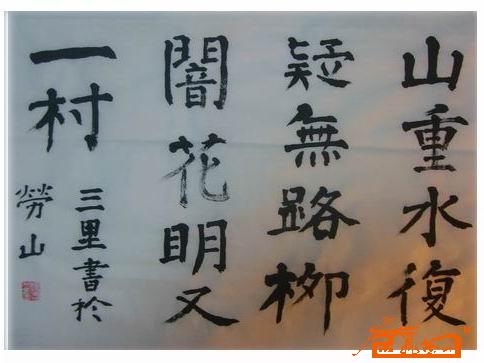 山重水復
疑無路柳
闇花明又
一村
三里書於
勞山